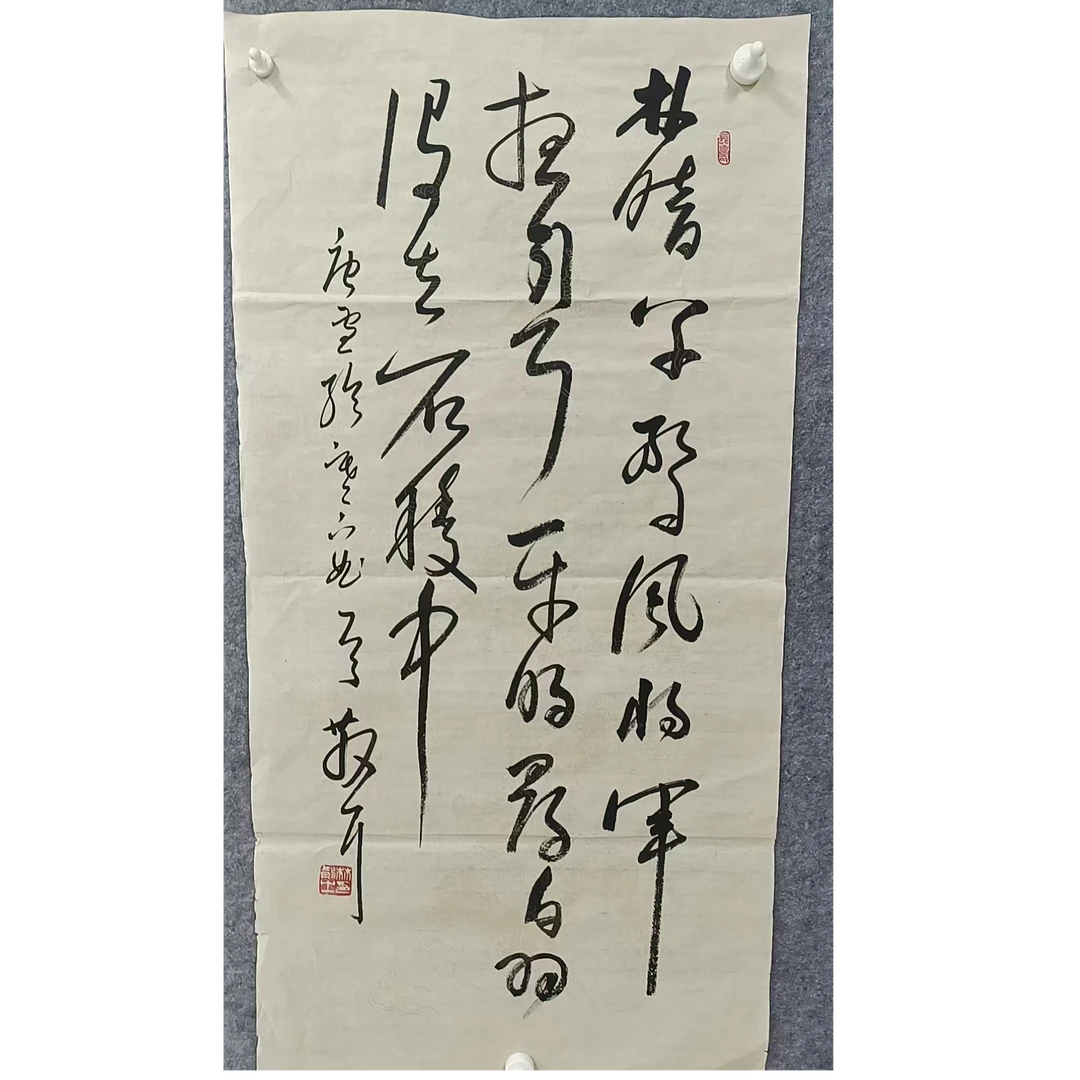 林暗草驚風將軍
夜引弓平明尋白羽
没在石稜中
唐盧綸塞下曲一首 散耳